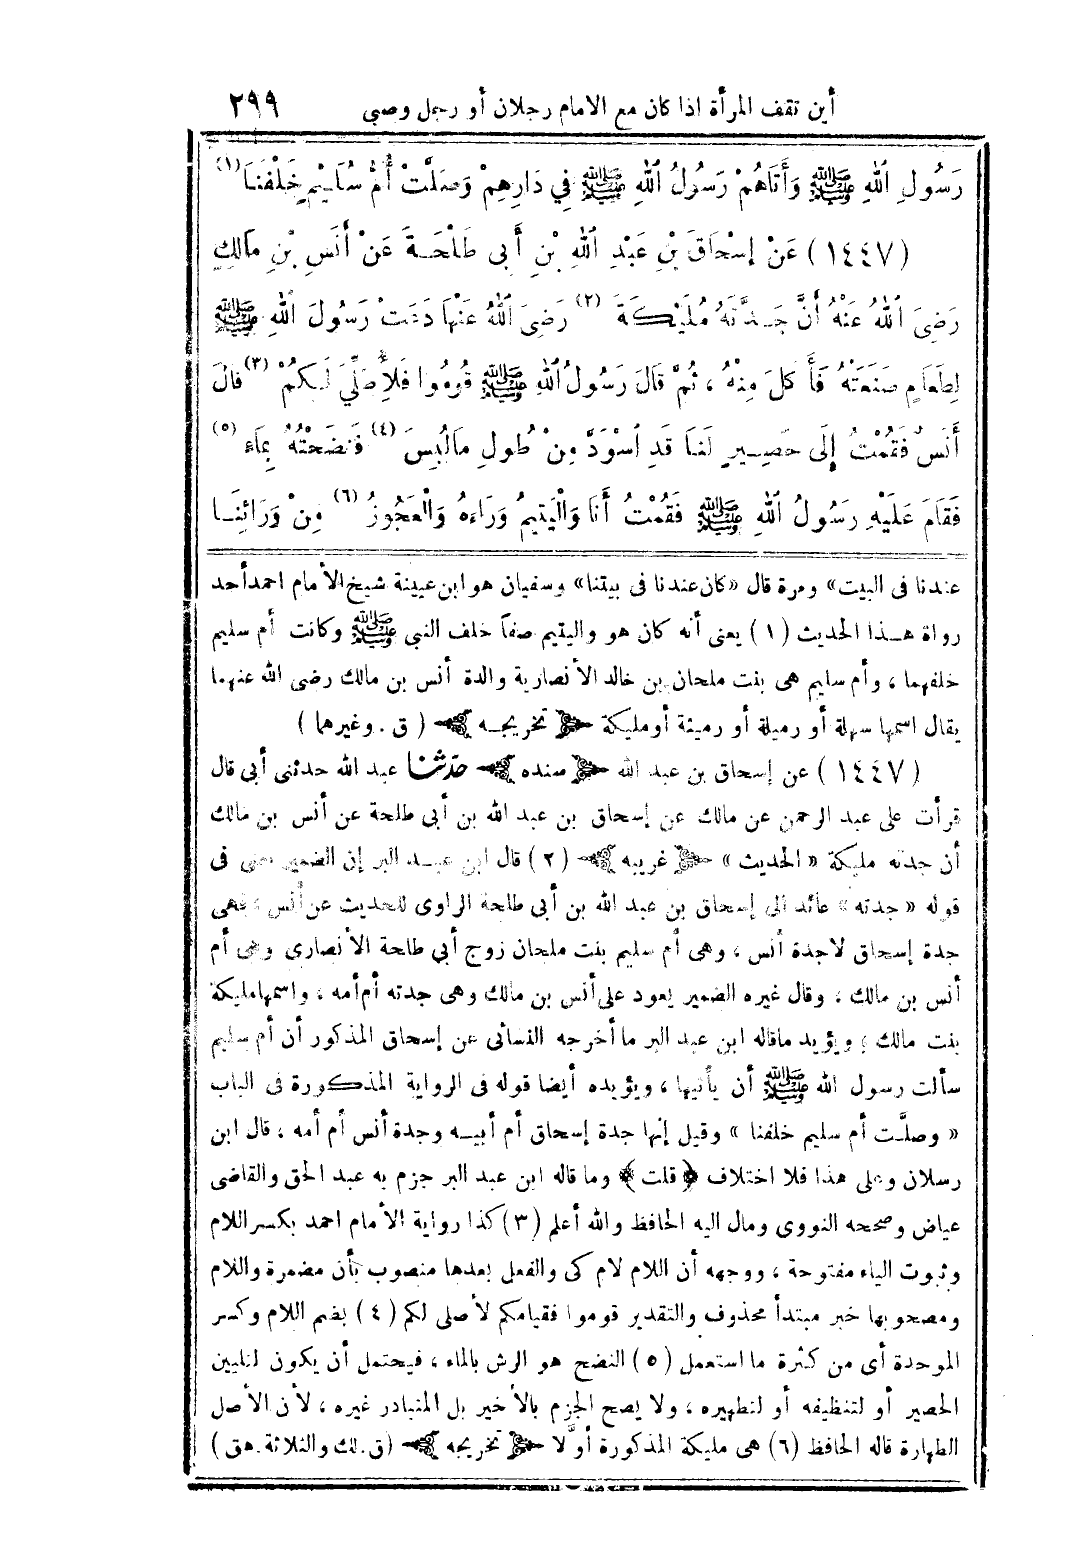 أين تقف المرأة اذا كان مع الامام رجلان أو رجل وصبى ٢٩٩
رَسُولِ اللهِ ﷺ وَأَتَاهُمْ رَسُولُ اللهِ ﷺ فِي دَارِهِمْ وَصَلَّتْ أُمُّ سُلَيْمٍ خَلْفَنَا (١)
(١٤٤٧) عَنْ إِسْحَاقَ بْنِ عَبْدِ اللهِ بْنِ أَبِى طَلْحَةَ عَنْ أَنَسِ بْنِ مَالِكٍ
رَضِىَ اللهُ عَنْهُ أَنَّ جَدَّتَهُ مُلَيْكَةَ (٢) رَضِىَ اللهُ عَنْهَا دَعَتْ رَسُولَ اللهِ ﷺ
لِطَعَامٍ صَنَعَتْهُ فَأَكَلَ مِنْهُ ، ثُمَّ قَالَ رَسُولُ اللهِ ﷺ قُومُوا فَلِأُصَلِّىَ لَكُمْ (٣) قَالَ
أَنَسٌ فَقُمْتُ إِلَى حَصِيرٍ لَنَا قَدِ اسْوَدَّ مِنْ طُولِ مَا لُبِسَ (٤) فَنَضَحْتُهُ بِمَاءٍ (٥)
فَقَامَ عَلَيْهِ رَسُولُ اللهِ ﷺ فَقُمْتُ أَنَا وَالْيَتِيمُ وَرَاءَهُ وَالْعَجُوزُ (٦) مِنْ وَرَائِنَا
عندنا فى البيت» ومرة قال «كان عندنا فى بيتنا» وسفيان هو ابن عيينة شيخ الأمام احمد أحد
رواة هـذا الحديث (١) يعنى أنه كان هو واليتيم صفا خلف النبى ﷺ وكانت أم سليم
خلفهما ، وأم سليم هى بنت ملحان بن خالد الأنصارية والدة أنس بن مالك رضى الله عنهما
يقال اسمها سهلة أو رميلة أو رميثة أو مليكة ﴿ تخريجـه ﴾ (ق . وغيرهما)
(١٤٤٧) عن إسحاق بن عبد الله ﴿ سنده ﴾ حدثنا عبد الله حدثنى أبى قال
قرأت على عبد الرحمن عن مالك عن إسحاق بن عبد الله بن أبى طلحة عن أنس بن مالك
أن جدته مليكة «الحديث» ﴿ غريبه ﴾ (٢) قال ابن عبـد البر إن الضمير يعنى فى
قوله «جدته» عائد الى إسحاق بن عبد الله بن أبى طلحة الراوى للحديث عن أنس ، فهى
جدة إسحاق لاجدة أنس ، وهى أم سليم بنت ملحان زوج أبي طلحة الأنصارى وهى أم
أنس بن مالك ، وقال غيره الضمير يعود على أنس بن مالك وهى جدته أم أمه ، واسمها مليكة
بنت مالك ؛ ويؤيد ماقاله ابن عبد البر ما أخرجه النسائى عن إسحاق المذكور أن أم سليم
سألت رسول الله ﷺ أن يأتيها ، ويؤيده أيضا قوله فى الرواية المذكورة فى الباب
« وصلَّت أم سليم خلفنا » وقيل إنها جدة إسحاق أم أبيـه وجدة أنس أم أمه ، قال ابن
رسلان وعلى هذا فلا اختلاف ﴿قلت﴾ وما قاله ابن عبد البر جزم به عبد الحق والقاضى
عياض وصححه النووى ومال اليه الحافظ والله أعلم (٣) كذا رواية الأمام احمد بكسر اللام
وثبوت الياء مفتوحة ، ووجهه أن اللام لام كى والفعل بعدها منصوب بأن مضمرة واللام
ومصحوبها خبر مبتدأ محذوف والتقدير قوموا فقيامكم لأصلى لكم (٤) بضم اللام وكسر
الموحدة أى من كثرة ما استعمل (٥) النضح هو الرش بالماء ، فيحتمل أن يكون لتليين
الحصير أو لتنظيفه أو لتطهيره ، ولا يصح الجزم بالأخير بل المتبادر غيره ، لأن الأصل
الطهارة قاله الحافظ (٦) هى مليكة المذكورة أوَّلا ﴿ تخريجه ﴾ (ق . لك والثلاثة . هق)